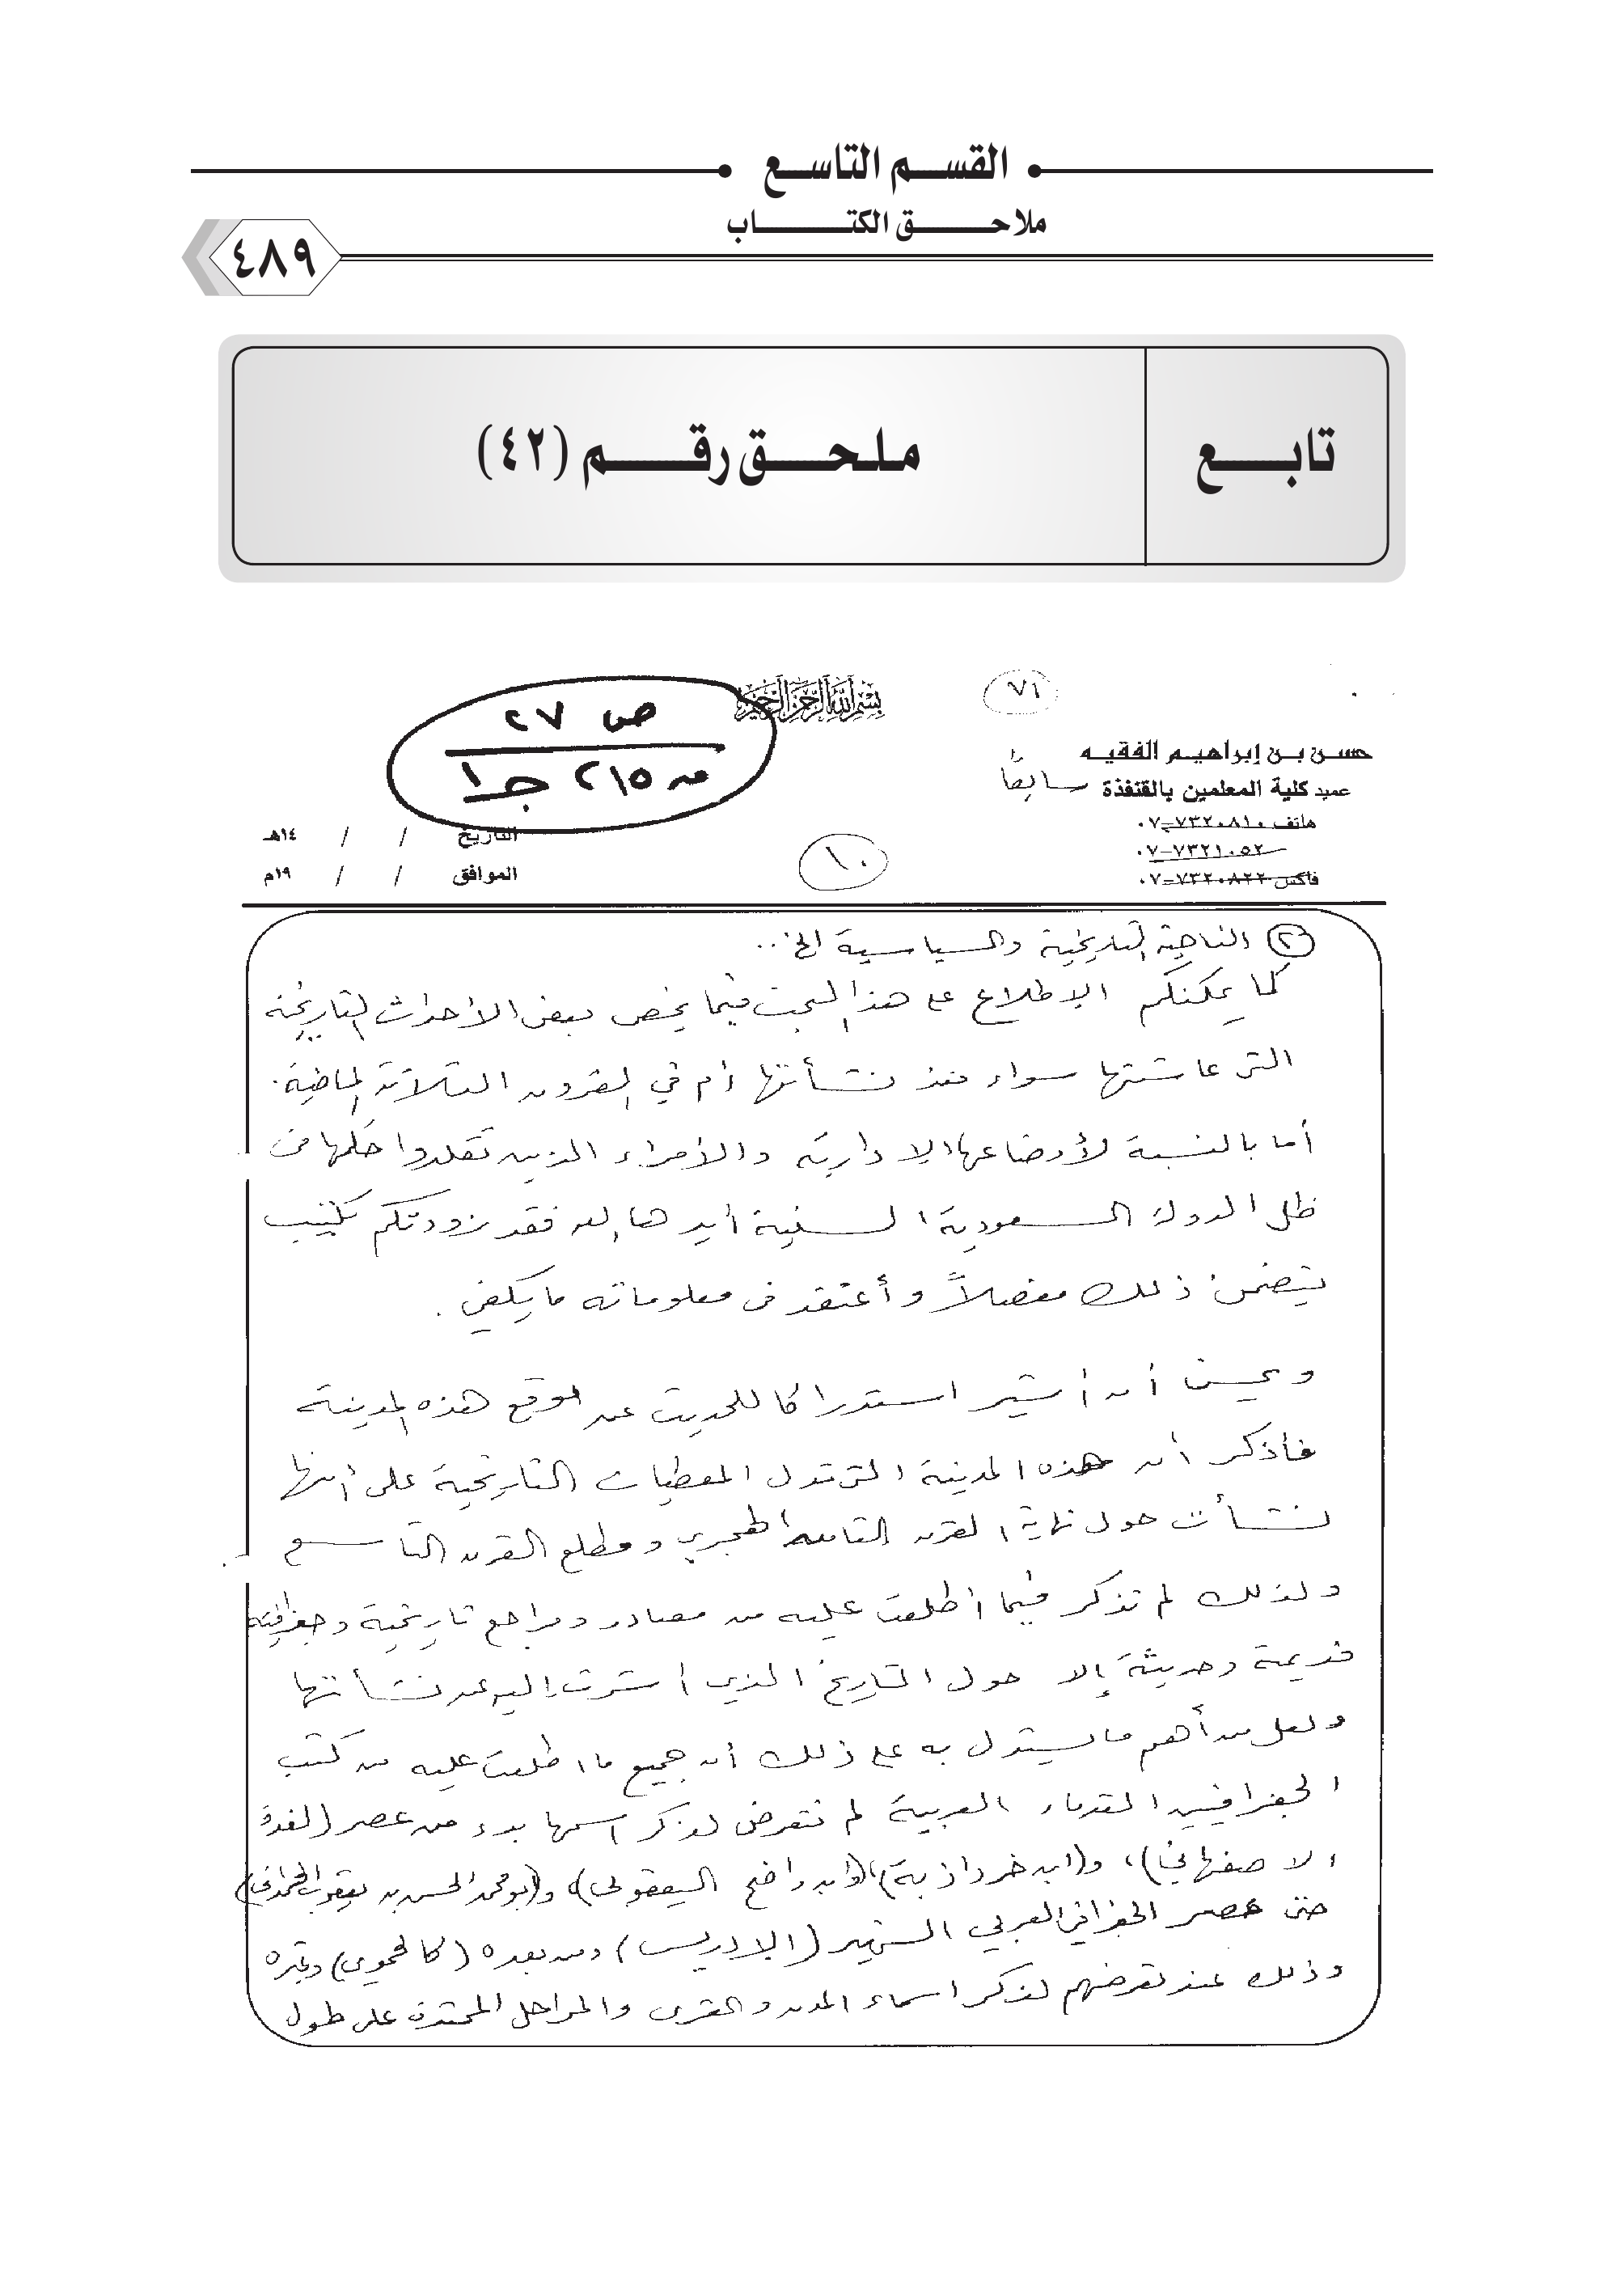 القسم التاسع
ملاحق الكتاب
٤٨٩
تابع
ملحق رقم (٤٢)
٧١
بسم الله الرحمن الرحيم
ص ٢٧
من ٢١٥ جـ١
حسن بن إبراهيم الفقيه
عميد كلية المعلمين بالقنفذة سابقاً
هاتف ٧٣٢٠٨١٠-٠٧
٧٣٢١٠٥٢-٠٧
فاكس ٧٣٢٠٨٢٢-٠٧
١٠
التاريخ / / ١٤هـ
الموافق / / ١٩م
(٢) الناحية التاريخية والسياسية الخ..
كما يمكنكم الإطلاع على هذا البحث فيما يخص بعض الأحداث التاريخية
التي عاشتها سواء منذ نشأتها أم في القرون الثلاثة الماضية.
أما بالنسبة لأوضاعها الإدارية والأمراء الذين تقلدوا حكمها في
ظل الدولة السعودية السنية أيدها الله فقد زودتكم بكتيب
يتضمن ذلك مفصلاً وأعتقد في معلوماته ما يكفي.
ويحسن أن أشير استدراكا للحديث عن موقع هذه المدينة
فأذكر أن هذه المدينة التي تدل المعطيات التاريخية على أنها
نشأت حول نهاية القرن الثامن الهجري ومطلع القرن التاسع
ولذلك لم تذكر فيما أطلعت عليه من مصادر ومراجع تاريخية وجغرافية
قديمة وحديثة إلا حول التاريخ الذي أشرت إليه عند نشأتها
ولعل من أهم ما يستدل به على ذلك أن جميع ما اطلعت عليه من كتب
الجغرافيين القدماء العربية لم تتعرض لذكر اسمها بدء من عصر (لغدة
الاصفهاني)، و(ابن خرداذبة)، (وابن واضح اليعقوبي)، و(أبو محمد الحسن بن يعقوب الهمداني)
حتى عصر الجغرافي العربي الشهير (الإدريسي) ومن بعده (كالحموي) وغيره
وذلك عند تعرضهم لذكر اسماء المدن والقرى والمراحل الممتدة على طول